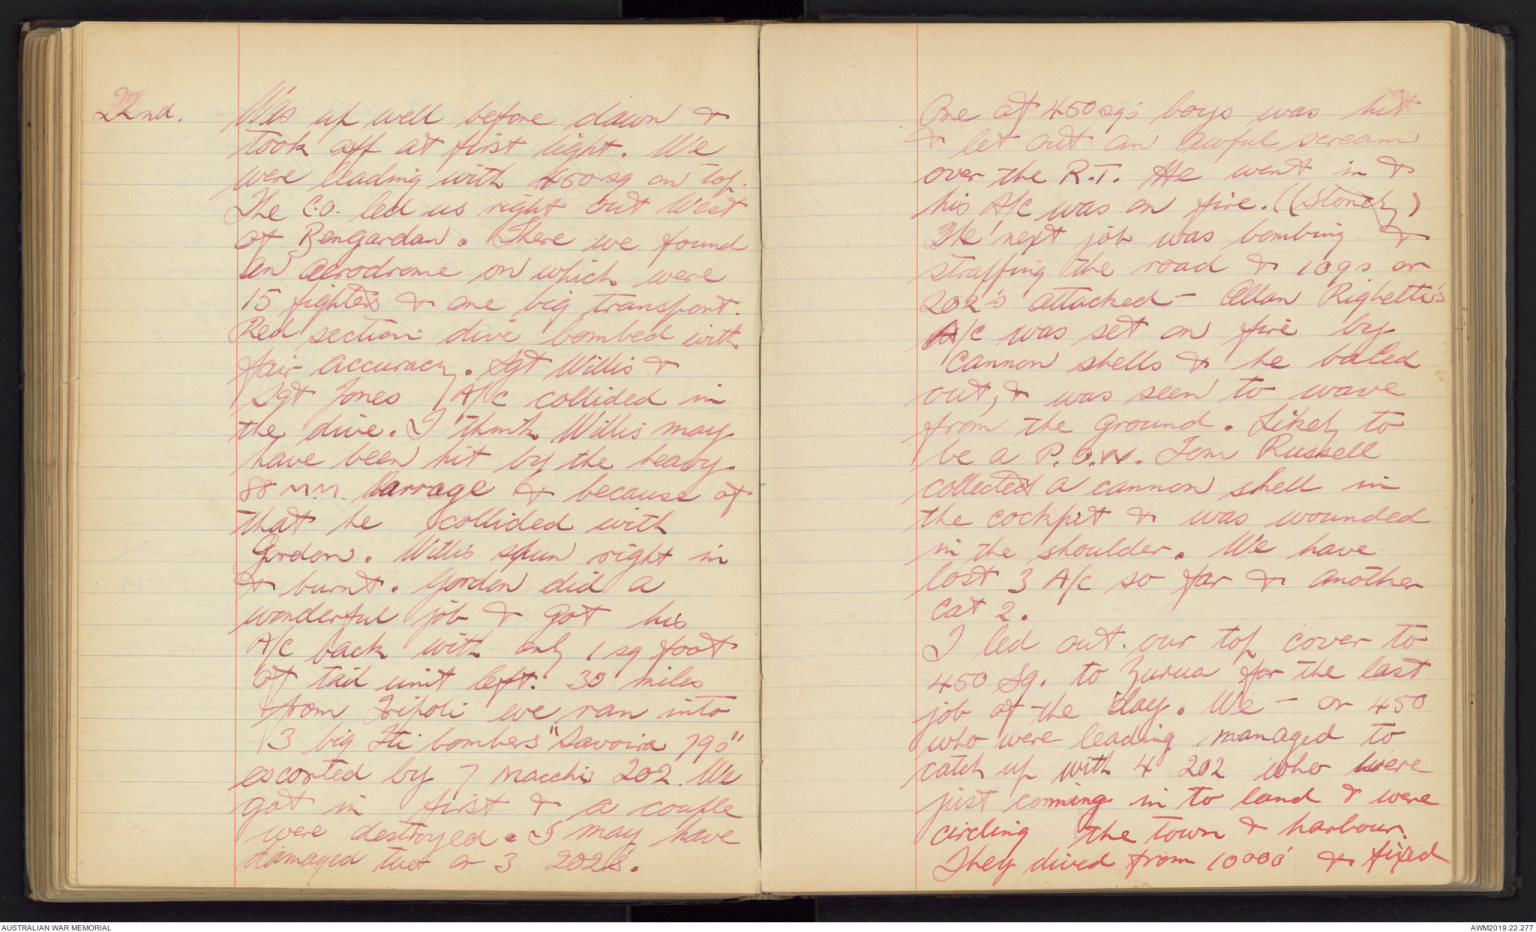 22nd. Was up well before dawn &
took off at first light. We
were leading with 450 sq on top.
The C.O. led us right out West
of Bengardan. There we found
an aerodrome on which were
15 fighters & one big transport.
Red section dive bombed with
fair accuracy. Sgt Willis &
Sgt Jones A/c collided in
the dive. I think Willis may
have been hit by the heavy
88 m.m. barrage & because of
that he collided with
Gordon. Willis spun right in
& burnt. Gordon did a
wonderful job & got his
A/c back with only 1 sq foot
of tail unit left. 30 miles
from Tripoli we ran into
3 big Iti bombers "Savoira 79s"
escorted by 7 Macchi 202. We
got in first & a couple
were destroyed. I may have
damaged two or 3 202s.
One of 450 sq's boys was hit
& let out an awful scream
over the R.T. He went in &
his A/c was on fire. (Stoneky)
The next job was bombing &
straffing the road & 109s or
202's attacked - Allan Righetti's
A/c was set on fire by
cannon shells & he baled
out, & was seen to wave
from the ground. Likely to
be a P.O.W. Tom Russell
collected a cannon shell in
the cockpit & was wounded
in the shoulder. We have
lost 3 A/c so far & another
Cat 2.
I led out our top cover to
450 Sq. to Zurua for the last
job of the day. We - or 450
who were leading managed to
catch up with 4 202 who were
just coming in to land & were
circling the town & harbour.
They dived from 10000' & fixed
AUSTRALIAN WAR MEMORIAL
AWM2019.22.277